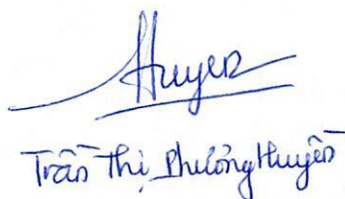 Huyen
Trần Thị Phương Huyền